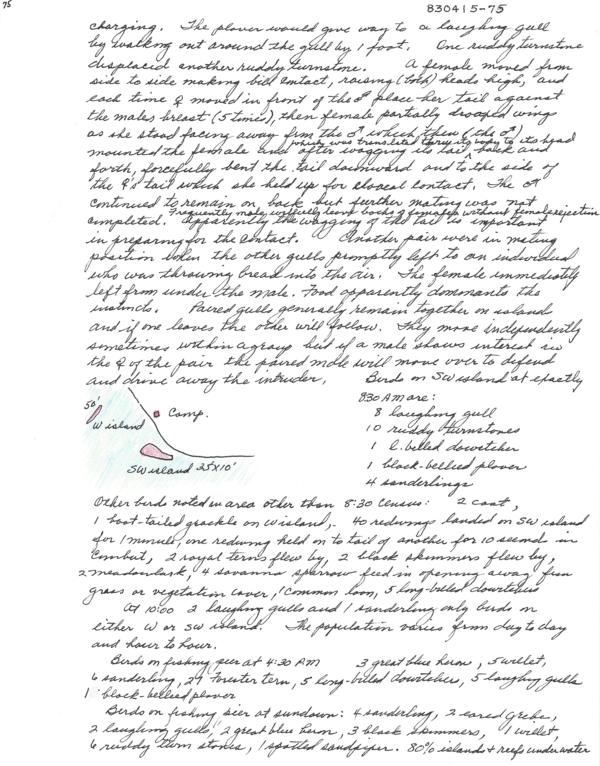 75
830415-75
charging. The plover would give way to a laughing gull
by walking out around the gull by 1 foot. One ruddy turnstone
displaced another ruddy turnstone. A female moved from
side to side making bill contact, raising (both) heads high, and
each time ♀ moved in front of the ♂ place her tail against
the males breast (5 times), then female partially drooped wing
as she stood facing away from the ♂ which then (the ♂)
mounted the female and after wagging its tail back and
which was translated thru its body to its head
forth, forcefully bent the tail downward and to the side of
the ♀'s tail which she held up for cloacal contact. The ♂
continued to remain on back but further mating was not
completed. Apparently the wagging of the tail is important
Frequently male willfully leave backs of females without female rejection
in preparing for the contact. Another pair were in mating
position when the other gulls promptly left to an individual
who was throwing bread into the air. The female immediately
left from under the male. Food apparently dominants the
instincts. Paired gulls generally remain together on island
and if one leaves the other will follow. They move independently
sometimes within a group but if a male shows interest in
the ♀ of the pair the paired male will move over to defend
and drive away the intruder. Birds on SW island at exactly
8:30 AM are:
8 laughing gull
10 ruddy turnstones
1 l. billed dowitcher
1 black-bellied plover
4 sanderlings
50'
W island
Camp.
SW island 25'x10'
Other birds noted in area other than 8:30 census: 2 coot,
1 boat-tailed grackle on W island, 40 redwings landed on SW island
for 1 minute, one redwing held on to tail of another for 10 second in
combat, 2 royal terns flew by, 2 black skimmers flew by,
2 meadowlark, 4 savanna sparrow feed in opening away from
grass or vegetation cover, 1 common loon, 5 long-billed dowitchers
At 10:00 2 laughing gulls and 1 sanderling only birds on
either W or SW island. The population varies from day to day
and hour to hour.
Birds on fishing pier at 4:30 PM 3 great blue heron, 5 willet,
6 sanderling, 27 Forster tern, 5 long-billed dowitcher, 5 laughing gulls
1 black-bellied plover
Birds on fishing pier at sundown: 4 sanderling, 2 eared grebe,
2 laughing gulls, 2 great blue heron, 3 black skimmers, 1 willet,
6 ruddy turn stones, 1 spotted sandpiper. 80% islands & reefs underwater